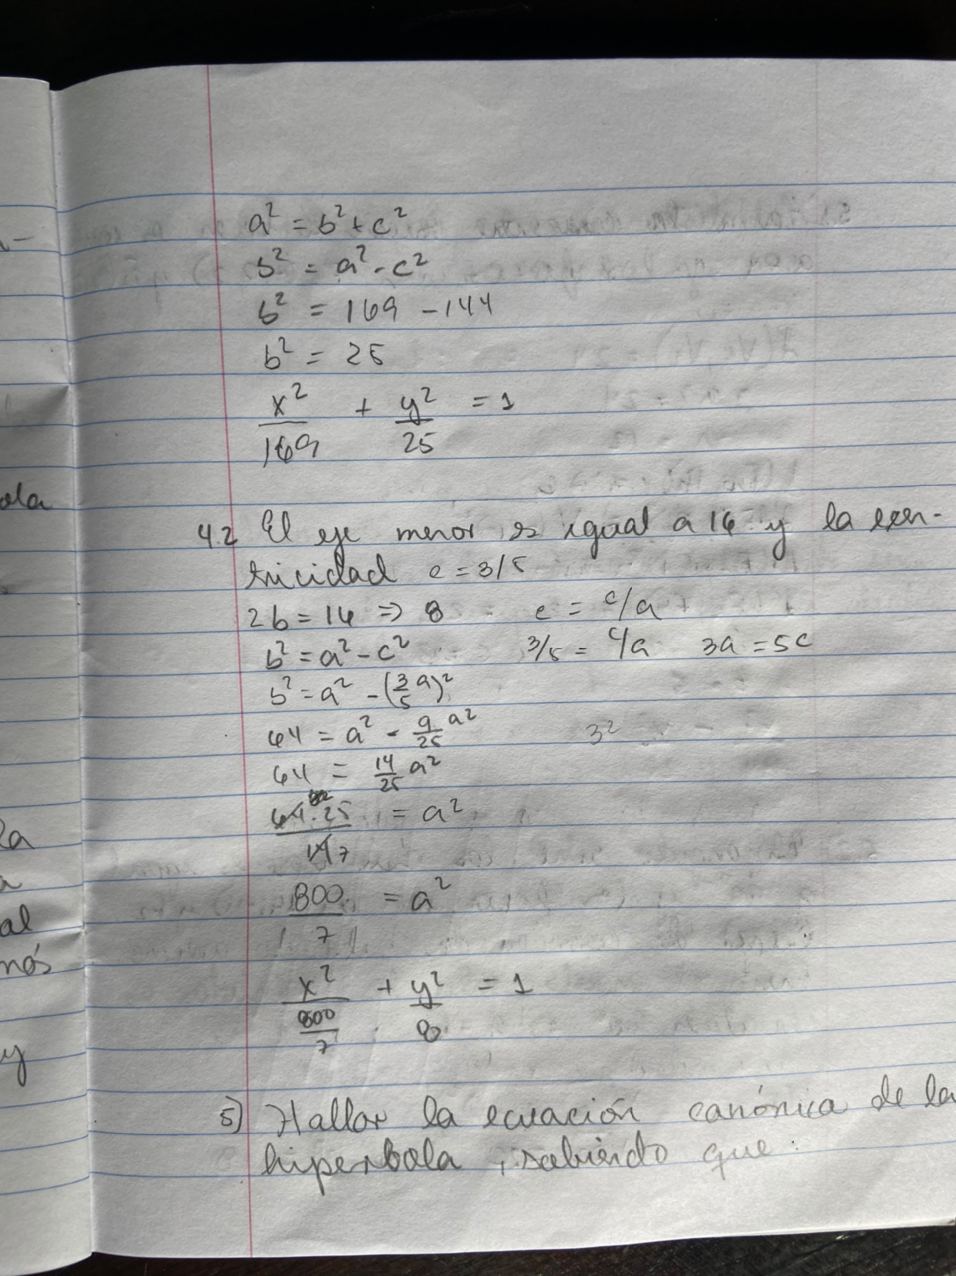 a² = b² + c²
b² = a² - c²
b² = 169 - 144
b² = 25
x²/169 + y²/25 = 1
4.2 El eje menor es igual a 16 y la exen-
tricidad e = 3/5
2b = 16 => 8 e = c/a
b² = a² - c² 3/5 = c/a 3a = 5c
b² = a² - (3/5 a)²
64 = a² - 9/25 a² 3²
64 = 14/25 a²
64.25/14 7 = a²
800/7 = a²
x²/(800/7) + y²/8 = 1
5) Hallar la ecuación canónica de la
hiperbola, sabiendo que:
ola
2a
a
al
nos
y